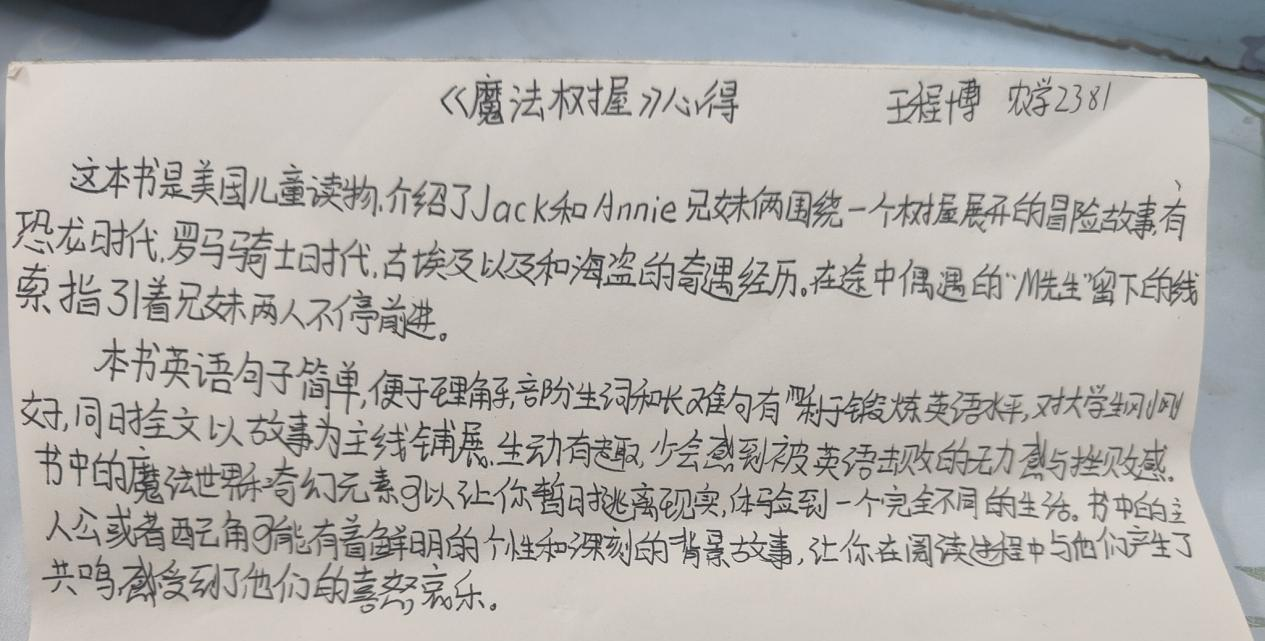 《魔法树屋》心得 王程博 农学2381
这本书是美国儿童读物,介绍了Jack和Annie兄妹俩围绕一个树屋展开的冒险故事,有
恐龙时代,罗马骑士时代,古埃及以及和海盗的奇遇经历。在途中偶遇的“M先生”留下的线
索指引着兄妹两人不停前进。
本书英语句子简单,便于理解,部分生词和长难句有利于锻炼英语水平,对大学生刚刚
好,同时全文以故事为主线铺展,生动有趣,少会感到被英语击败的无力感与挫败感。
书中的魔法世界和奇幻元素可以让你暂时逃离现实,体验到一个完全不同的生活。书中的主
人公或者配角可能有着鲜明的个性和深刻的背景故事,让你在阅读过程中与他们产生了
共鸣,感受到了他们的喜怒哀乐。